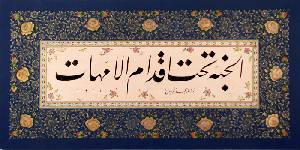 الجنة تحت اقدام الامهات